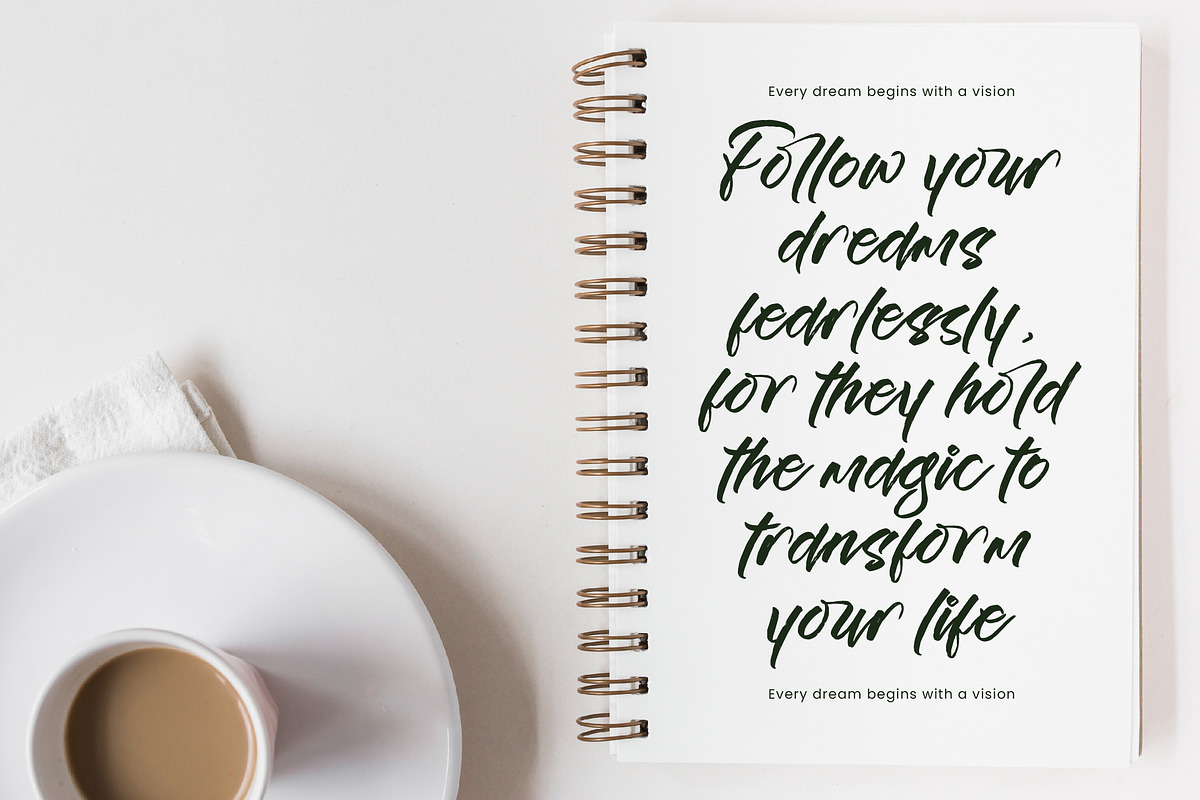 Every dream begins with a vision
Follow your
dreams
fearlessly,
for they hold
the magic to
transform
your life
Every dream begins with a vision